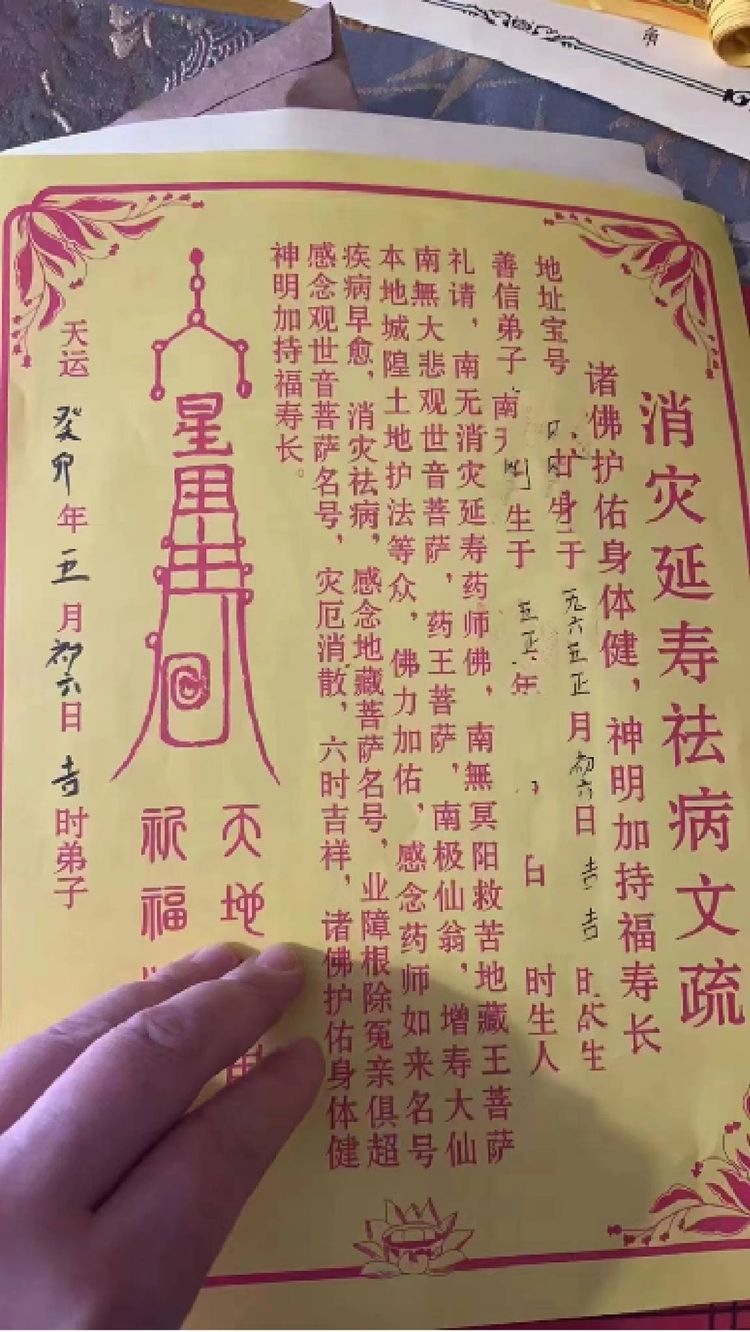 消灾延寿祛病文疏
诸佛护佑身体健，神明加持福寿长
地址宝号
生于一九六五年正月初六日吉时生
善信弟子
生于 年 日 时生人
礼请，南无消灾延寿药师佛，南無冥阳救苦地藏王菩萨
南無大悲观世音菩萨，药王菩萨，南极仙翁，增寿大仙
本地城隍土地护法等众，佛力加佑，感念药师如来名号
疾病早愈，消灾祛病，感念地藏菩萨名号，业障根除冤亲俱超
感念观世音菩萨名号，灾厄消散，六时吉祥，诸佛护佑身体健
神明加持福寿长。
天地
祈福
天运癸卯年五月初六日吉时弟子